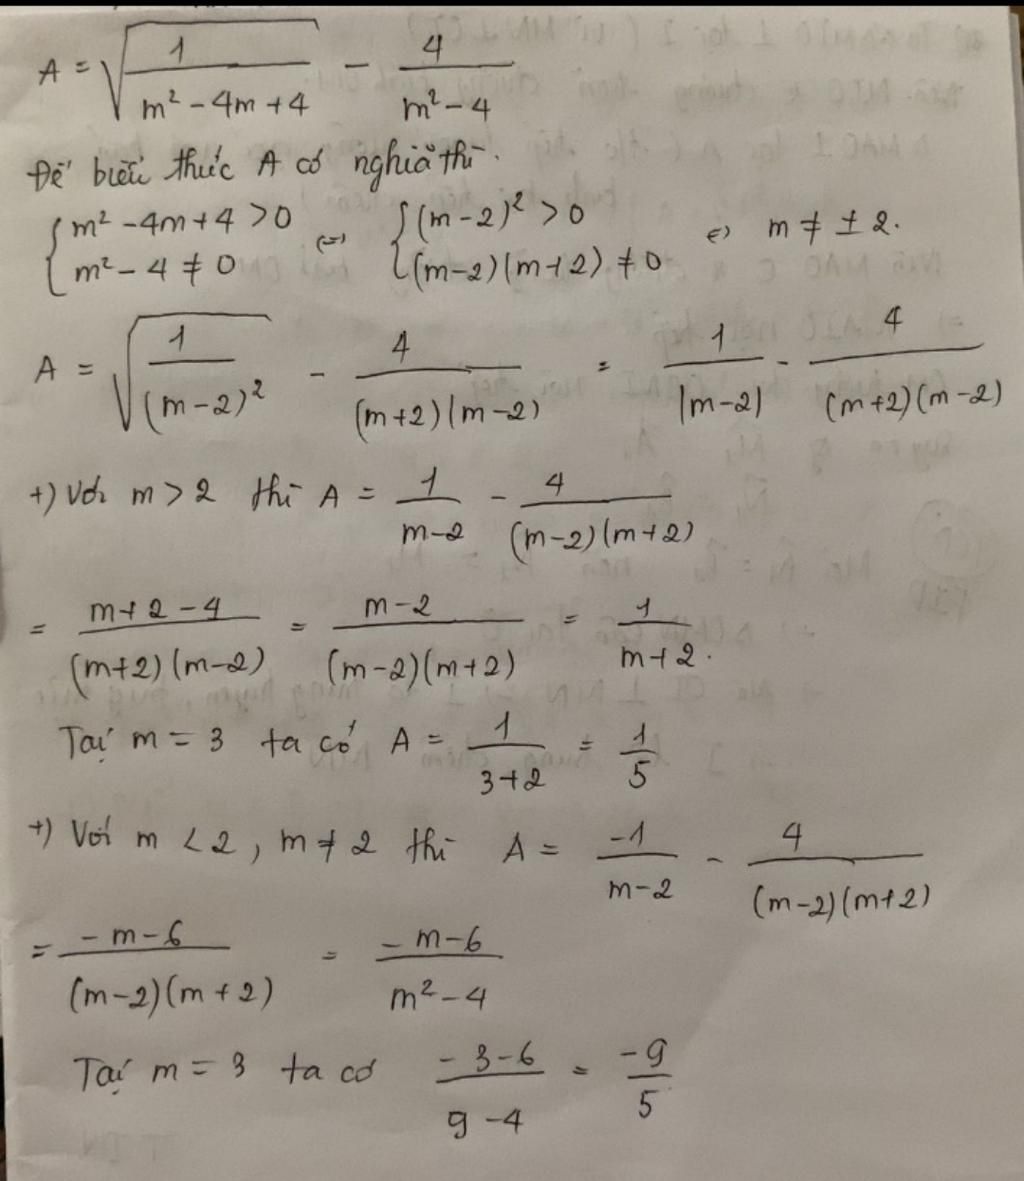 A = √(1/(m² - 4m + 4)) - 4/(m² - 4)
Để biểu thức A có nghĩa thì.
{m² - 4m + 4 > 0 {(m - 2)² > 0
{m² - 4 ≠ 0 (=) {(m-2)(m+2) ≠ 0 (=) m ≠ ± 2.
A = √(1/(m-2)²) - 4/((m+2)(m-2)) = 1/|m-2| - 4/((m+2)(m-2))
+) Với m > 2 thì A = 1/(m-2) - 4/((m-2)(m+2))
= (m+2-4)/((m+2)(m-2)) = (m-2)/((m-2)(m+2)) = 1/(m+2).
Tại m = 3 ta có A = 1/(3+2) = 1/5
+) Với m < 2, m ≠ 2 thì A = -1/(m-2) - 4/((m-2)(m+2))
= (-m-6)/((m-2)(m+2)) = (-m-6)/(m²-4)
Tại m = 3 ta có (-3-6)/(9-4) = -9/5